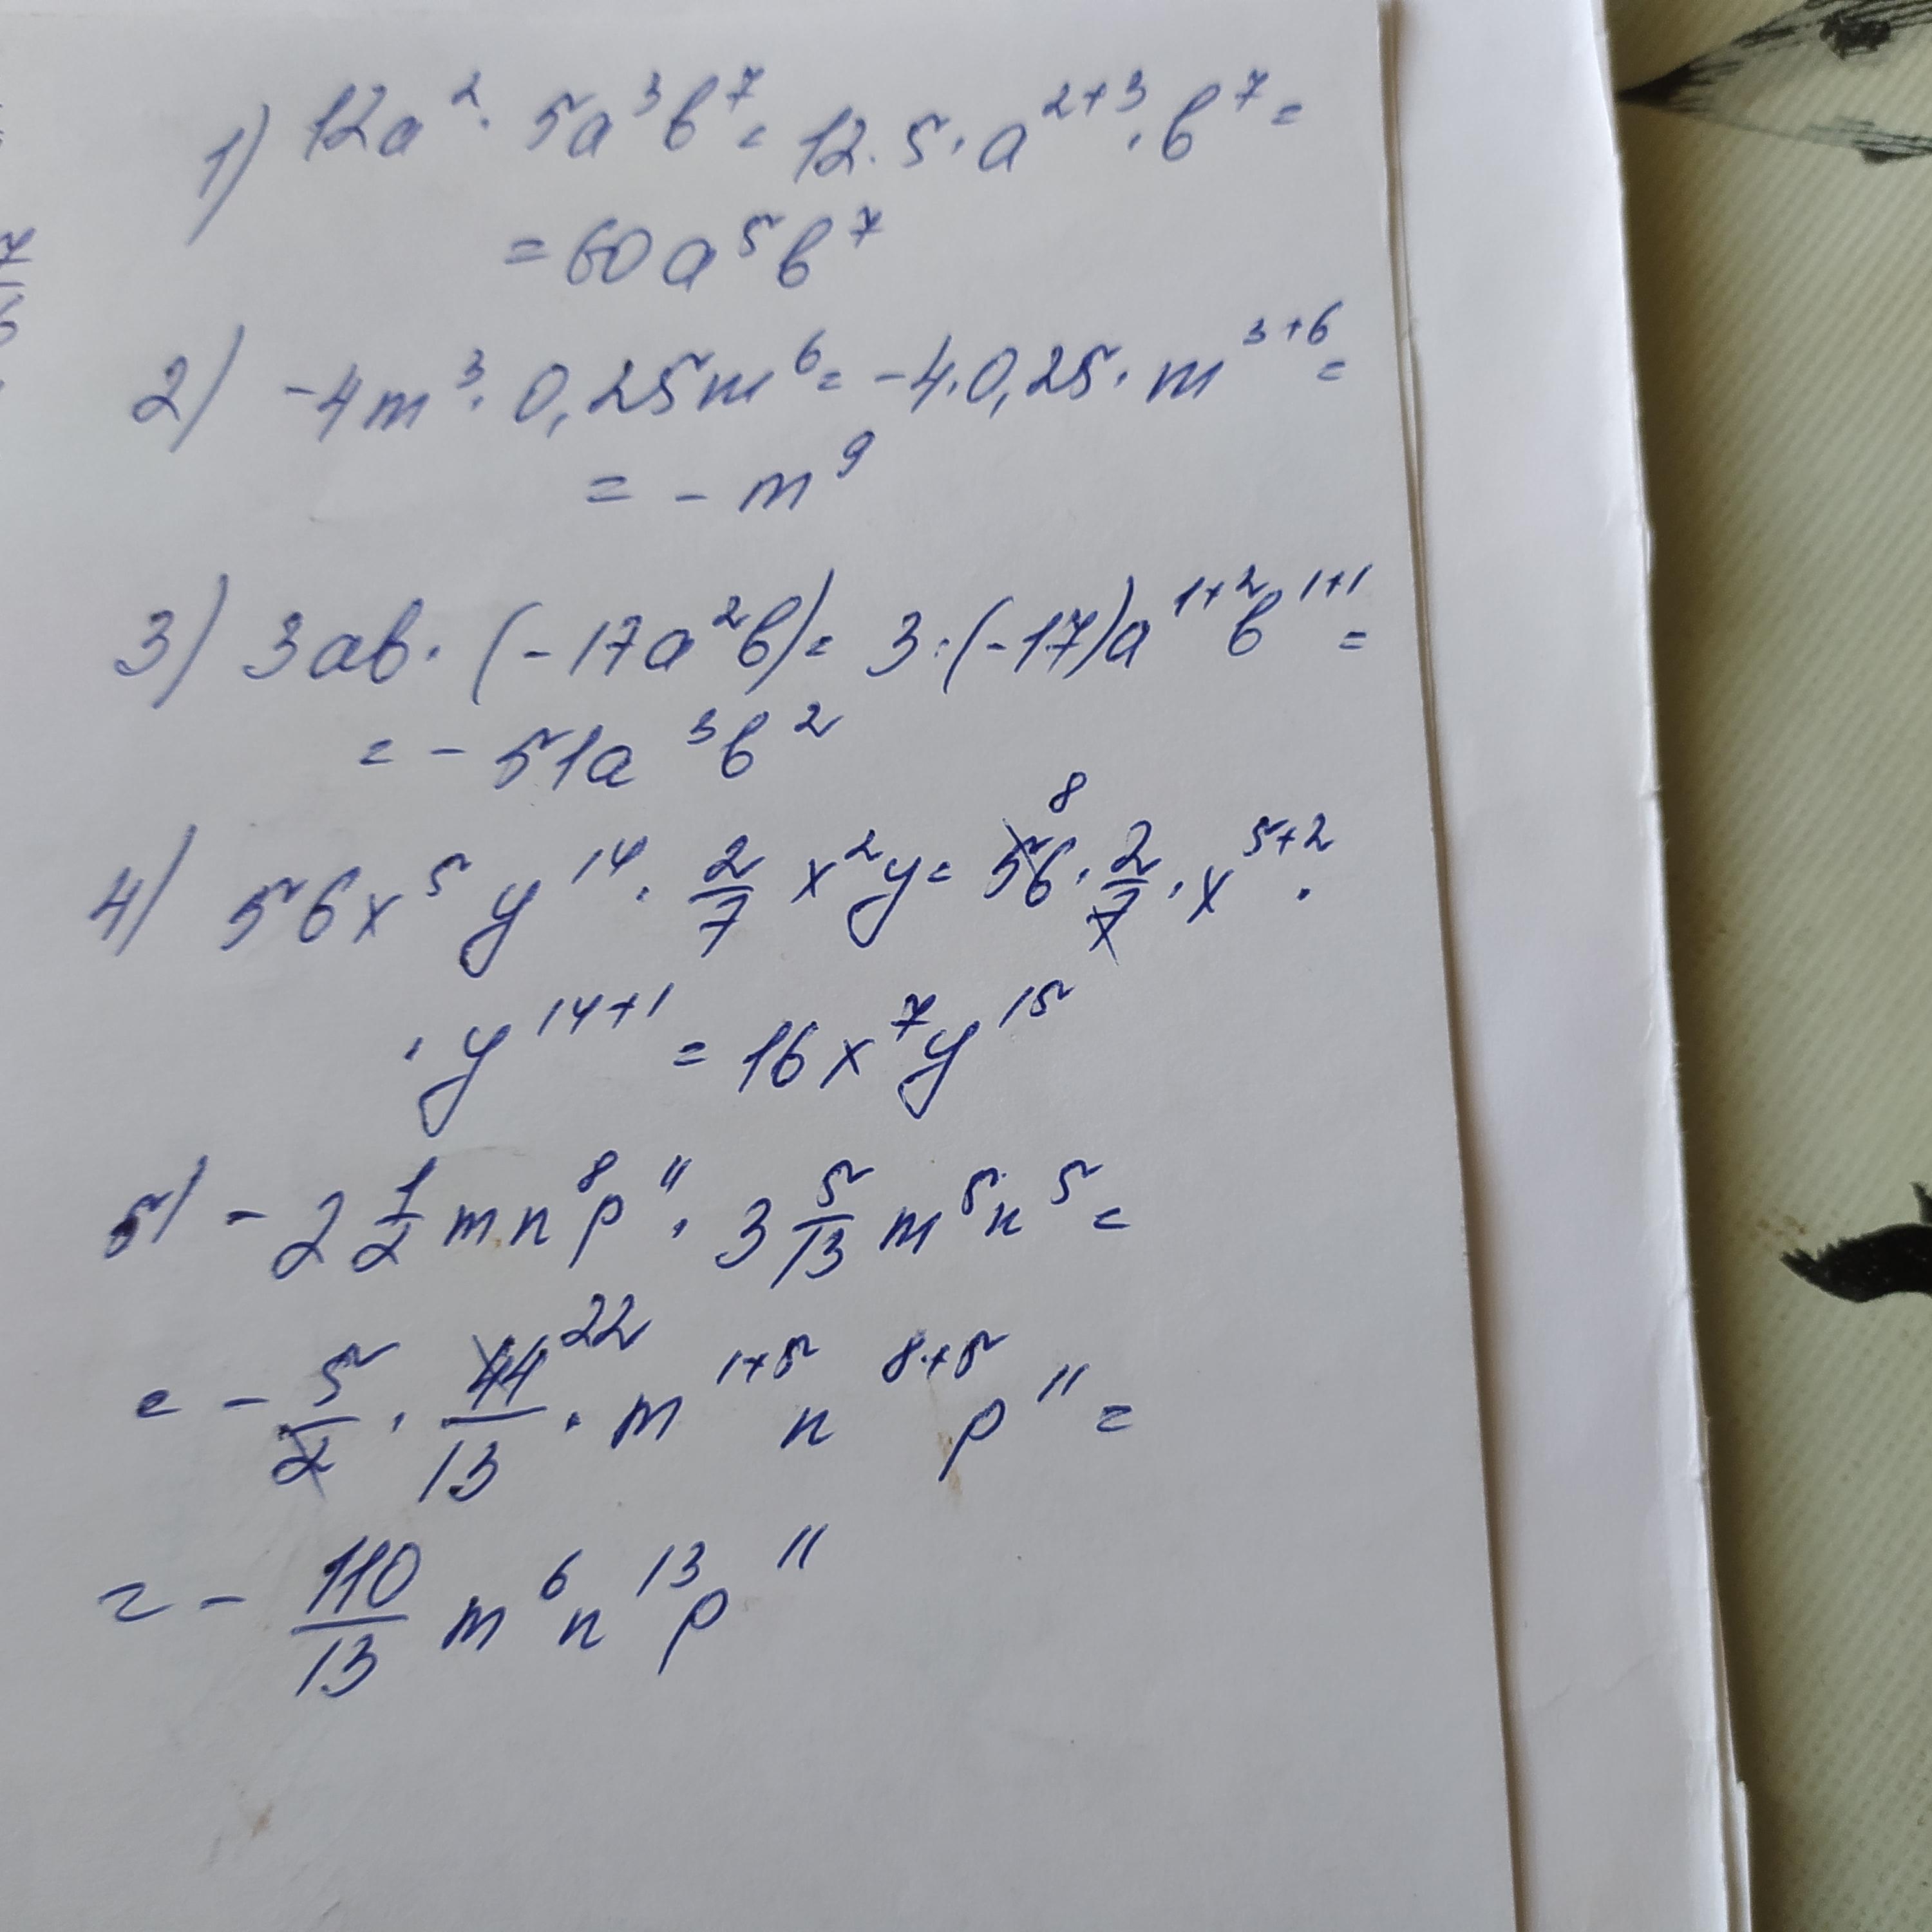 1) 12a²· 5a³b⁷= 12·5·a²⁺³·b⁷=
=60a⁵b⁷
2) -4m³·0,25m⁶= -4·0,25·m³⁺⁶=
= - m⁹
3) 3ab·(-17a²b)= 3·(-17)a¹⁺²b¹⁺¹=
= - 51a³b²
4) 56x⁵y¹⁴· 2/7 x²y= 56 8 · 2/7 · x⁵⁺² ·
· y¹⁴⁺¹ = 16x⁷y¹⁵
5) - 2 1/2 mn⁸p¹¹ · 3 5/13 m⁵n⁵ =
= - 5/2 · 44/13 22 · m¹⁺⁵ n⁸⁺⁵ p¹¹ =
= - 110/13 m⁶n¹³p¹¹